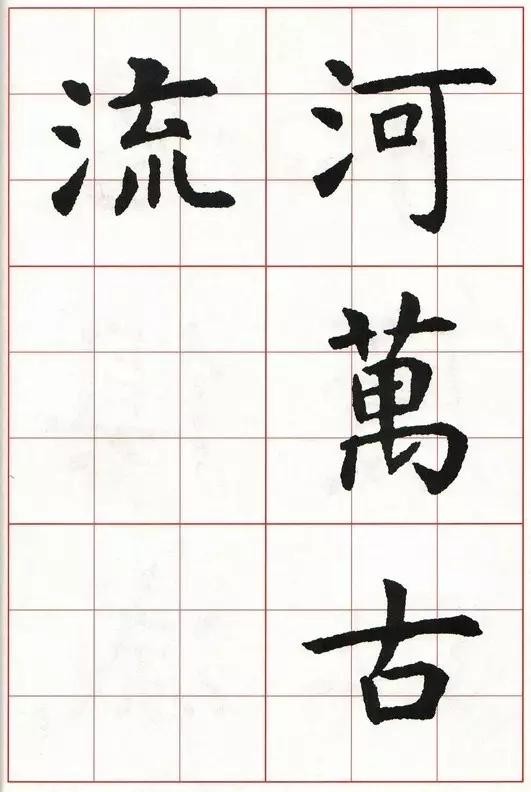 河萬古
流